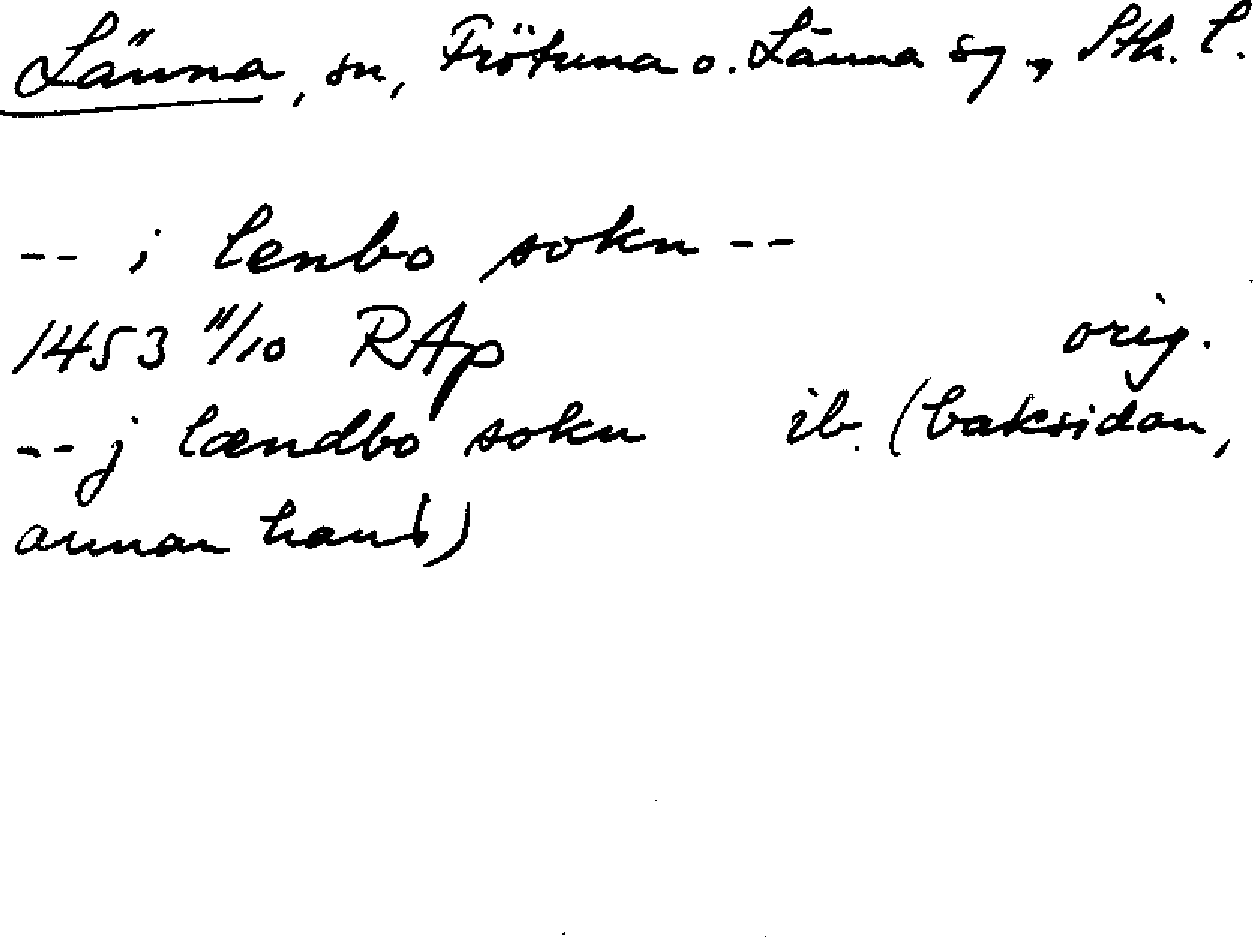 Länna, sn, Frötuna o. Länna sg, Sth. l.
-- i lenbo sokn --
1453 11/10 RAp orig.
-- j lændbo sokn ib. (baksidan,
annan hand)